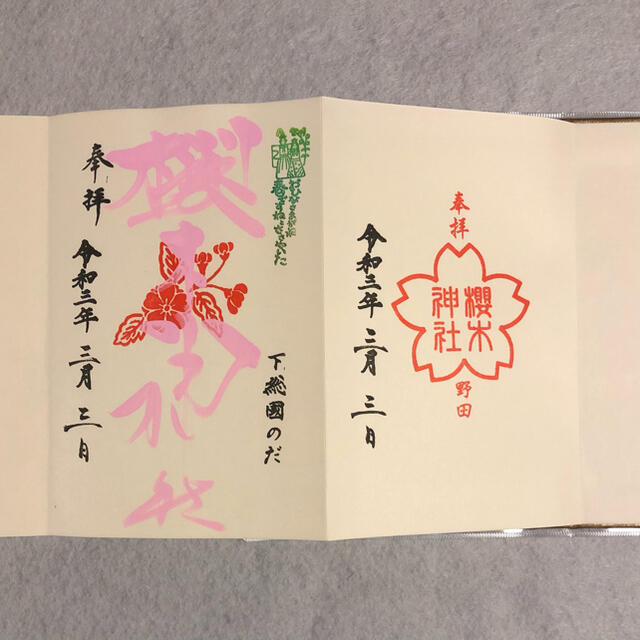 奉拝
野田
櫻木
神社
令和三年 三月 三日
下総國のだ
櫻木神社
奉拝
令和三年 三月 三日